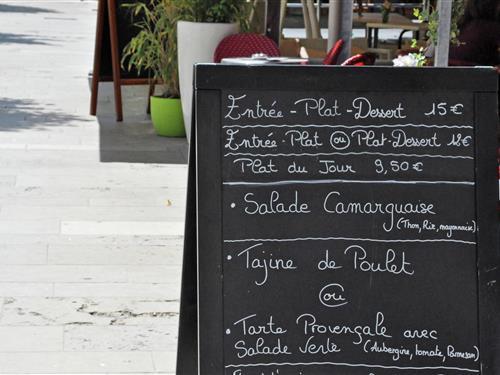 Entrée - Plat - Dessert 15€
Entrée - Plat ou Plat - Dessert 12€
Plat du Jour 9,50€
• Salade Camarguaise
(Thon, Riz, mayonnaise)
• Tajine de Poulet
ou
• Tarte Provençale avec
Salade Verte (Aubergine, tomate, Parmesan)